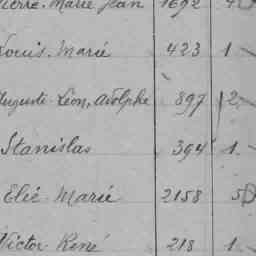 Pierre Marie Jean 1692
Louis Marie 423 1
Auguste Léon, Adolphe 897 2
Stanislas 394 1
Elie Marie 2158 5
Victor René 218 1